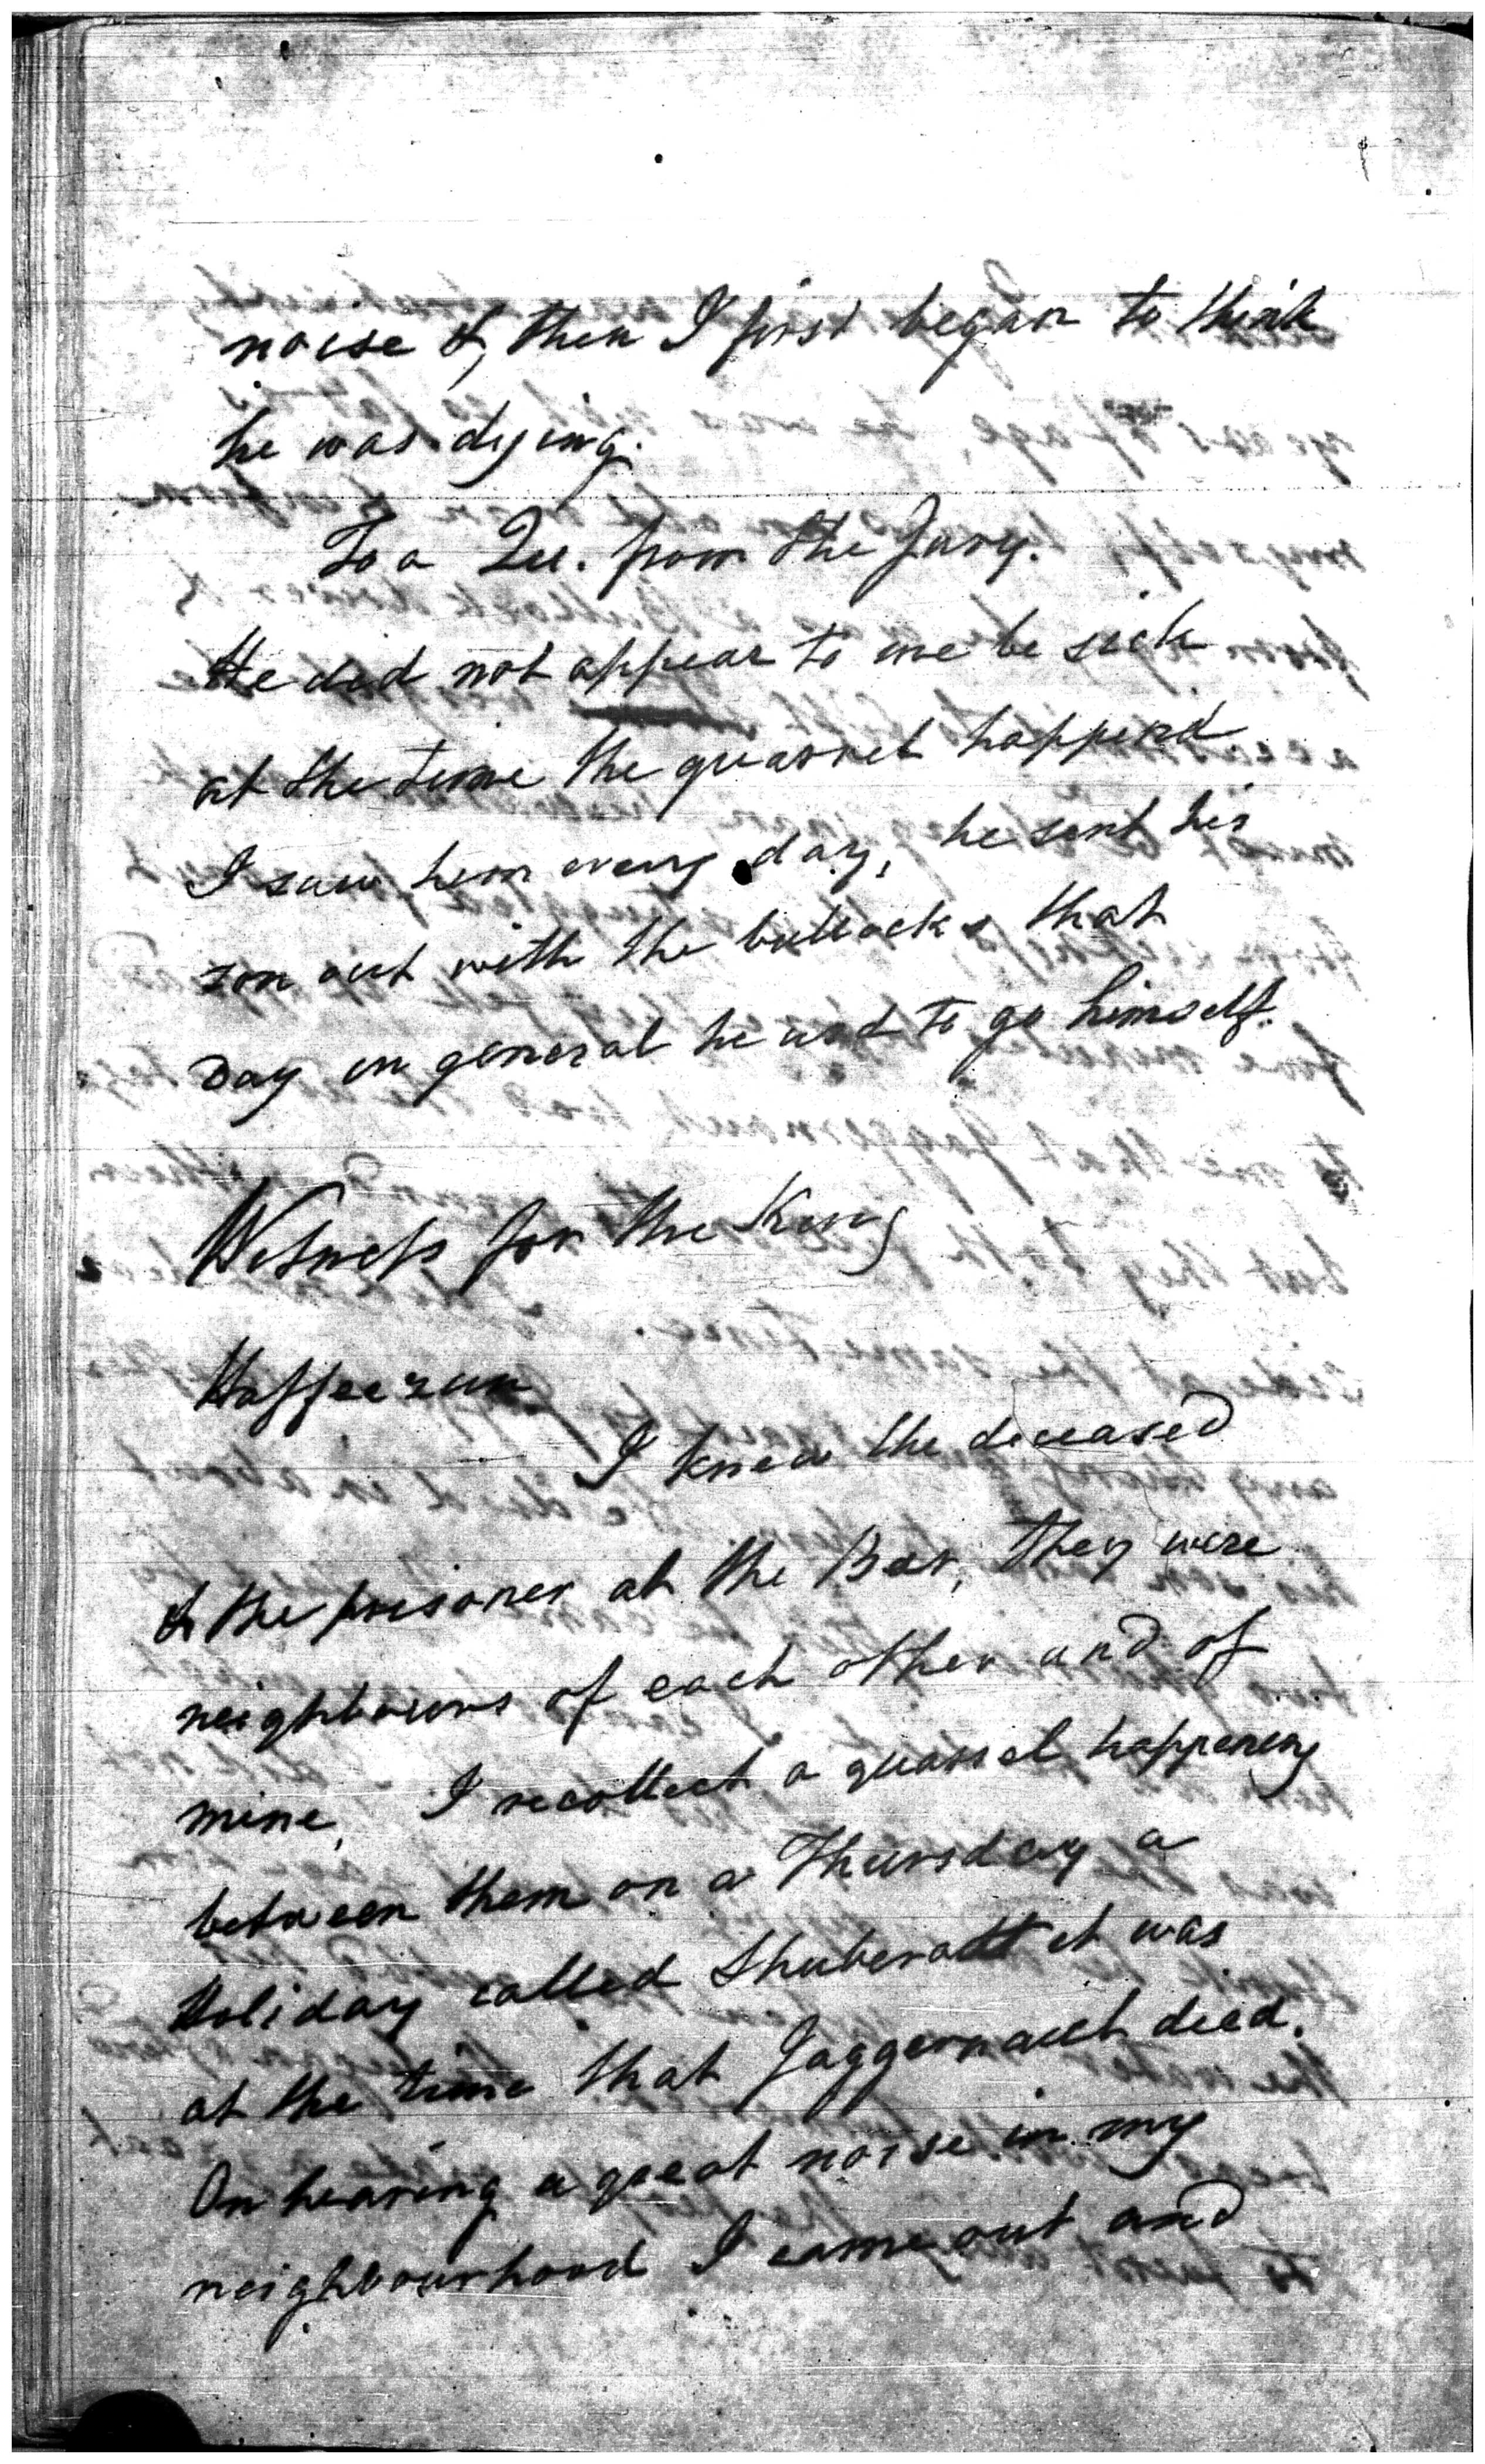 noise &, then I first began to think
he was dying.
To a Qu. from the Jury.
He did not appear to me be sick
at the time the quarrel happend
I saw him every day, he sent his
son out with the bullocks that
Day in general he usd to go himself.
Witness for the King
Haffeezun
I knew the deceased
& the prisoner at the Bar, they were
neighbours of each other and of
mine, I recollect a quarrel happening
between them on a Thursday a
Holiday called Shuberatt it was
at the time that Jaggernauth died.
On hearing a great noise in my
neighbourhood I came out and